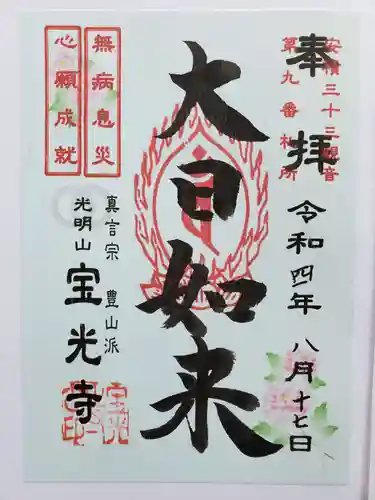 安積三十三観音
第九番札所
奉拝
令和四年 八月十七日
大日如来
無病息災
心願成就
真言宗 豊山派
光明山 宝光寺